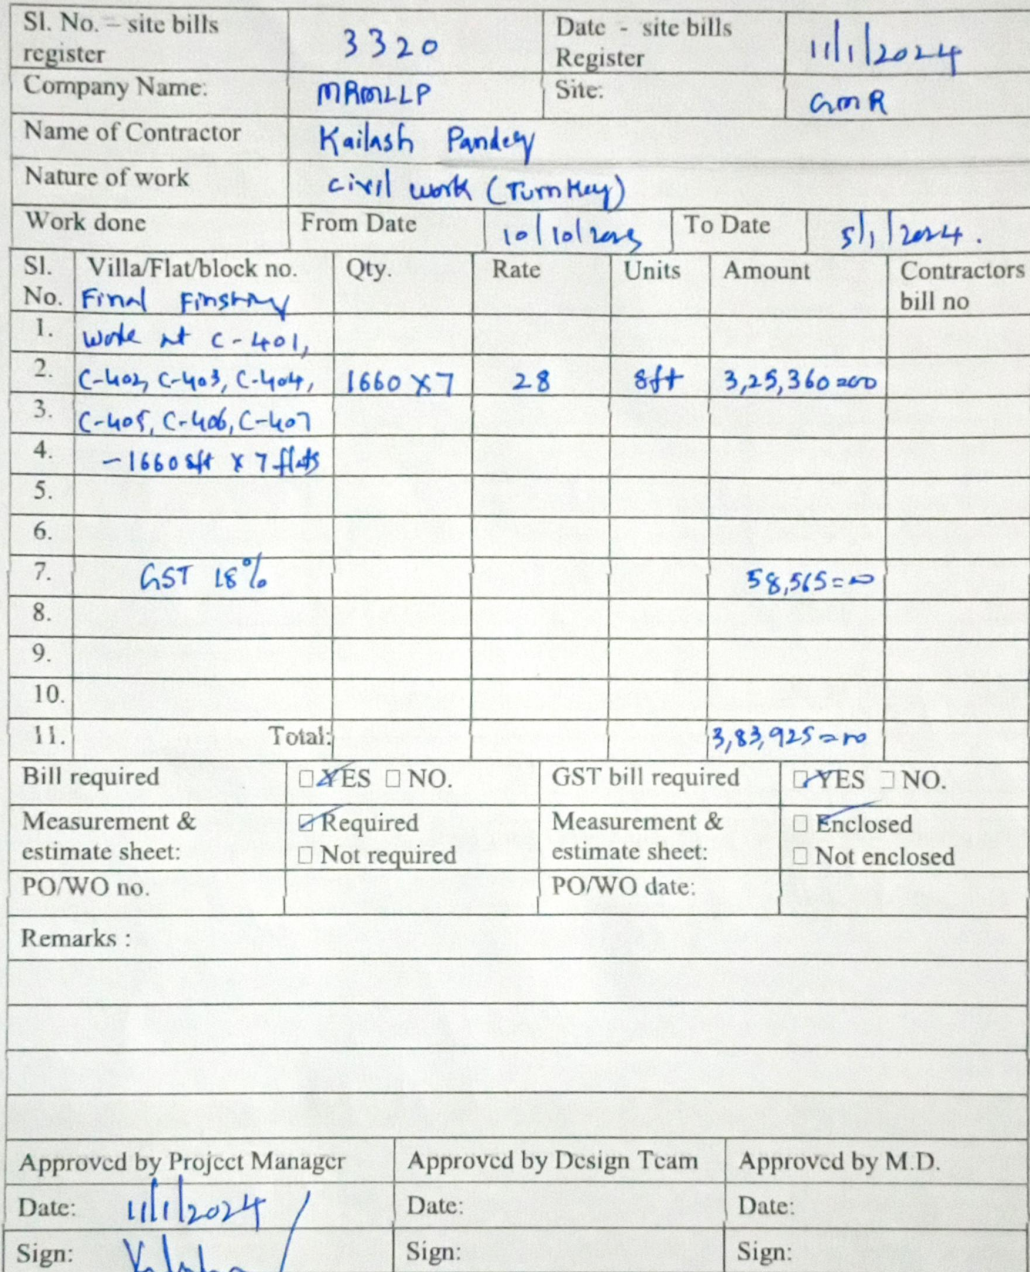 Sl. No. – site bills register 3320 Date - site bills Register 11/1/2024
Company Name: MRMLLP Site: GMR
Name of Contractor Kailash Pandey
Nature of work civil work (Turnkey)
Work done From Date 10/10/2023 To Date 5/1/2024.
Sl. No. Villa/Flat/block no. Qty. Rate Units Amount Contractors bill no
Final
1. work at C-401,
2. C-402, C-403, C-404, 1660 x 7 28 sft 3,25,360=00
3. C-405, C-406, C-407
4. - 1660 sft x 7 flats
5.
6.
7. GST 18% 58,565=00
8.
9.
10.
11. Total: 3,83,925=00
Bill required □ YES □ NO. GST bill required □ YES □ NO.
Measurement & estimate sheet: □ Required □ Not required Measurement & estimate sheet: □ Enclosed □ Not enclosed
PO/WO no. PO/WO date:
Remarks :
Approved by Project Manager Approved by Design Team Approved by M.D.
Date: 11/1/2024 Date: Date:
Sign: Sign: Sign: